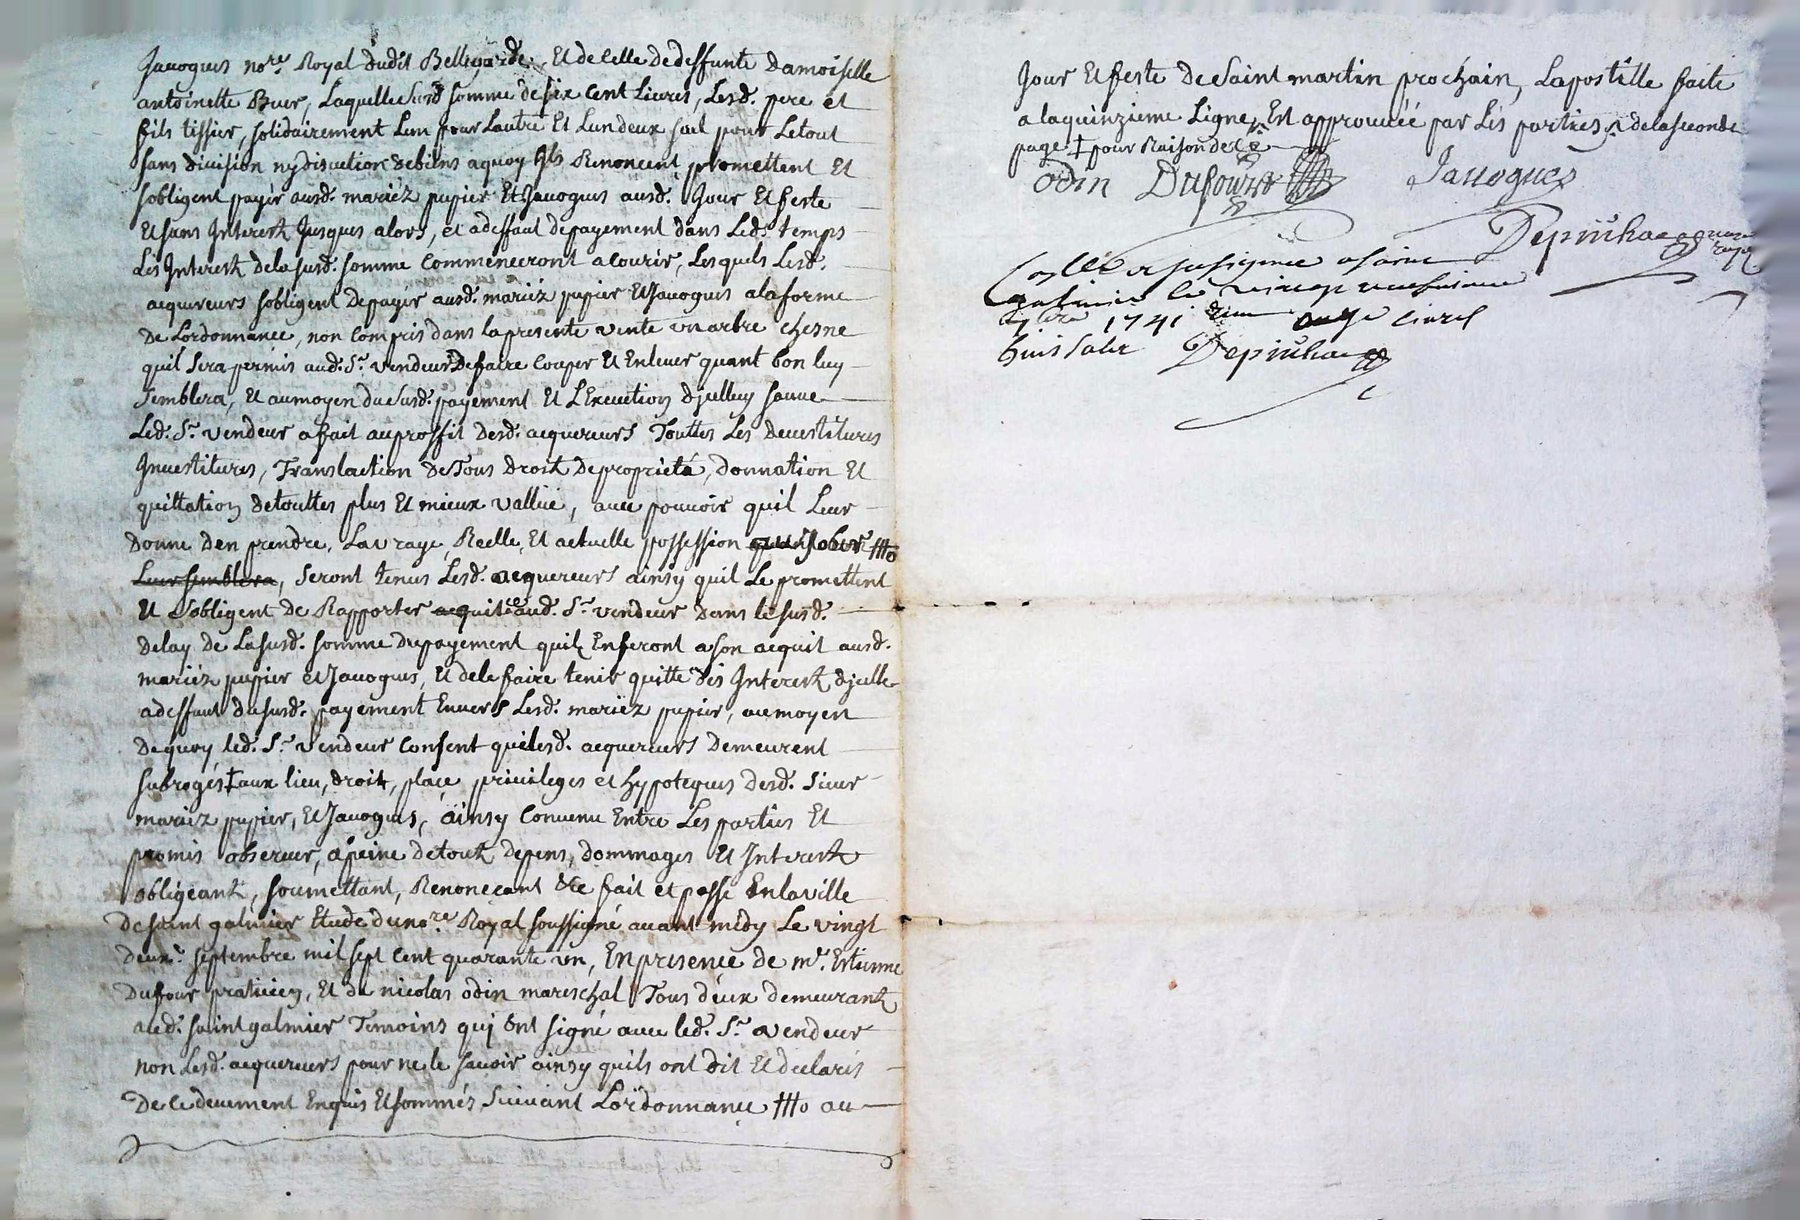 Jauogues no.re Royal dudit Bellegarde, Et de Celle de deffunte Damoiselle
antoinette Buer, Laquelle susd somme de six Cent Liures, Lesd. pere et
fils tissier, solidairement Lun pour Lautre Et Lun deux seul pour Letout
sans diuision ny discution de biens aquoy ils Renoncent, promettent Et
sobligent payer ausd. mariéz pupier Et Jauogues ausd. Jour Et feste
Et sans Interest Jusques alors, et adeffaut depayement dans Led. temps
Les Interest de la susd. somme Commenceront acourir, Lesquels Lesd.
acquereurs sobligent de payer ausd. mariéz pupier Et Jauogues alaforme
De Lordonnance, non Compris dans la presente vente un arbre Chesne
quil sera permis aud. Sr. vendeur de faire Couper Et Enleuer quant bon luy
semblera, Et aumoyen du susd. payement Et LExecution djcelluy sauue
Led. Sr. vendeur a fait auproffit desd. acquereurs Touttes Les Deuestitures
Inuestitures, Translaction de Tous droit de proprieté, donnation Et
quittation de touttes plus Et mieux vallüe, auec pouuoir quil Leur
donne den prendre, La vraye, Reelle, Et actuelle possession ttto
Leur semblera, seront tenus Lesd. acquereurs ainsy quil Le promettent
Et sobligent de Rapporter acquit aud. Sr. vendeur dans le susd.
delay de Lasusd. somme dupayement quil Enferont ason acquit ausd.
mariéz pupier et Jauogues, Et dele faire tenir quitte des Interest djcelle
adeffaut du susd. payement Enuers Lesd. mariéz pupier, aumoyen
Dequoy led. Sr. vendeur Consent quilesd. acquereurs Demeurent
subrogés ‡ aux lieu, droit, place, priuileges et hypoteques desd. sieur
mariéz pupier, Et Jauogues, ainsy Conuenu Entre Les parties Et
promis obseruer, apeine detout depens, dommages Et Interest
obligeant, soumettant, Renonceant &ce fait et passé En la ville
De saint galmier Etude du no.re Royal soussigné auant midy Le vingt
deux.e septembre mil sept Cent quarante un, En presence de mr. Estienne
Dufour praticien, Et de nicolas odin mareschal Tous deux demeurant
aud. saint galmier Temoins qui ont signé auec led. Sr. vendeur
non Lesd. acquereurs pour ne le sauoir ainsy quils ont dit Et declarés
De Ce deuement Enquis Et sommés suiuant Lordonnance ttto au
Jour Et feste de Saint martin prochain, Lapostille faite
a laquinzieme Ligne, Est approuuéé par Les parties, dela seconde
page ‡ pour Raison de Ce
odin Dufour Jauogues
Depiuhac
1741
Depiuhac